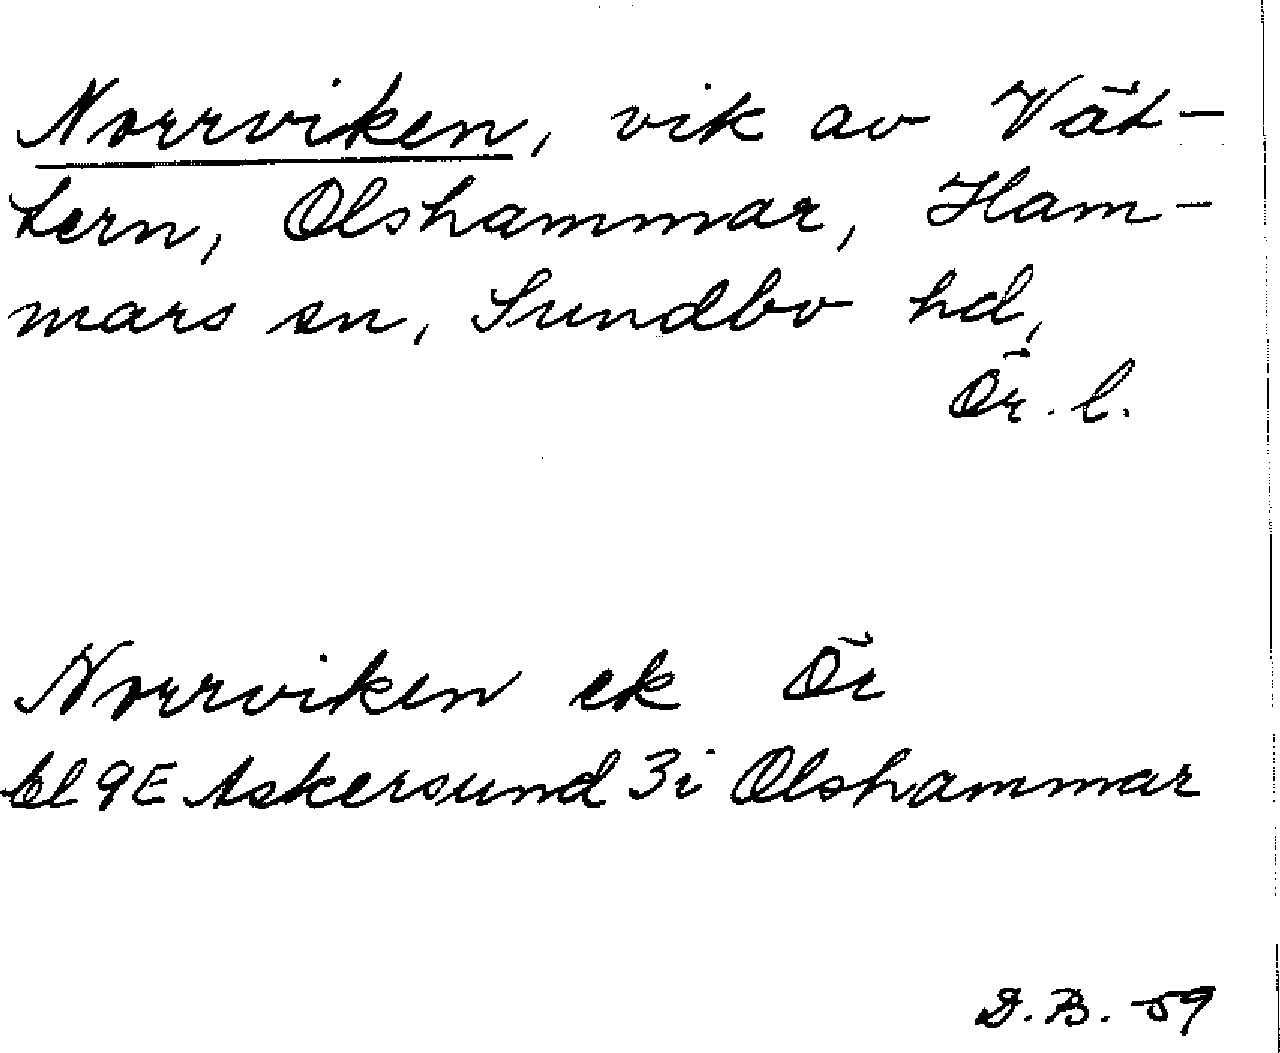 Norrviken, vik av Vät-
tern, Olshammar, Ham-
mars sn, Sundbo hd,
Ör. l.
Norrviken ek Ör
bl 9E Askersund 3i Olshammar
D.B. 59